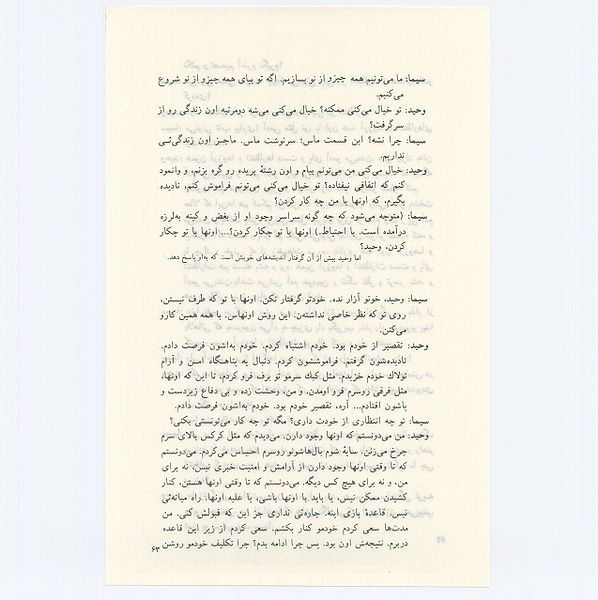 سیما: ما می‌تونیم همه چیزو از نو بسازیم. اگه تو بیای همه چیزو از نو شروع
می‌کنیم.
وحید: تو خیال می‌کنی ممکنه؟ خیال می‌کنی می‌شه دومرتبه اون زندگی رو از
سرگرفت؟
سیما: چرا نشه؟ این قسمت ماس؛ سرنوشت ماس. ماجز اون زندگی‌ئی
نداریم.
وحید: خیال می‌کنی من می‌تونم بیام و اون رشتهٔ بریده رو گره بزنم، و وانمود
کنم که اتفاقی نیفتاده؟ تو خیال می‌کنی می‌تونم فراموش کنم، نادیده
بگیرم، که اونها با من چه کار کردن؟
سیما: (متوجه می‌شود که چه گونه سراسر وجود او از بغض و کینه به‌لرزه
درآمده است. با احتیاط.) اونها با تو چکار کردن؟... اونها با تو چکار
کردن، وحید؟
اما وحید بیش از آن گرفتار اندیشه‌های خویش است که به‌او پاسخ دهد.
سیما: وحید، خوتو آزار نده. خودتو گرفتار نکن. اونها با تو که طرف نیستن،
روی تو که نظر خاصی نداشتن. این روش اونهاس. با همه همین کارو
می‌کنن.
وحید: تقصیر از خودم بود. خودم اشتباه کردم. خودم به‌اشون فرصت دادم.
نادیده‌شون گرفتم. فراموششون کردم. دنبال یه پناهگاه امن و آرام
تولاك خودم خزیدم. مثل کبك سرمو تو برف فرو کردم. تا این که اونها،
مثل قرقی روسرم فرو اومدن. و من، وحشت زده و بی دفاع زیردست و
پاشون افتادم... آره، تقصیر خودم بود. خودم به‌اشون فرصت دادم.
سیما: تو چه انتظاری از خودت داری؟ مگه تو چه کار می‌تونستی بکنی؟
وحید: من می‌دونستم که اونها وجود دارن. می‌دیدم که مثل کرکس بالای سرم
چرخ می‌زنن. سایهٔ شوم بال‌هاشونو روسرم احساس می‌کردم. می‌دونستم
که تا وقتی اونها وجود دارن از آرامش و امنیت خبری نیس، نه برای
من، و نه برای هیچ کس دیگه. می‌دونستم که تا وقتی اونها هستن، کنار
کشیدن ممکن نیس. یا باید با اونها باشی، یا علیه اونها. راه میانه‌ئی
نیس. قاعدهٔ بازی اینه. چاره‌ئی نداری جز این که قبولش کنی. من
مدت‌ها سعی کردم خودمو کنار بکشم. سعی کردم از زیر این قاعده
دربرم. نتیجه‌ش اون بود. پس چرا ادامه بدم؟ چرا تکلیف خودمو روشن
۶۳